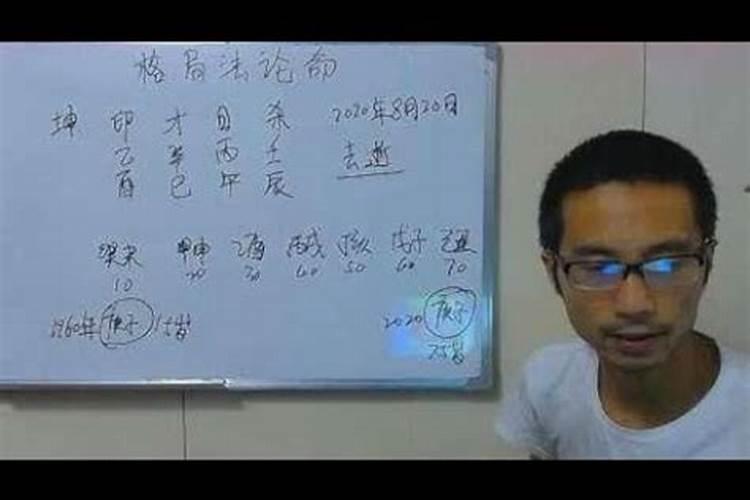 格局法论命
坤 印 才 日 杀 2020年8月20日
乙 辛 丙 壬 去逝
酉 巳 午 辰
甲申 乙酉 丙戌 丁亥 戊子 己丑
10 20 30 40 50 60 70
1960年 庚子 15岁 2020 庚子
75岁